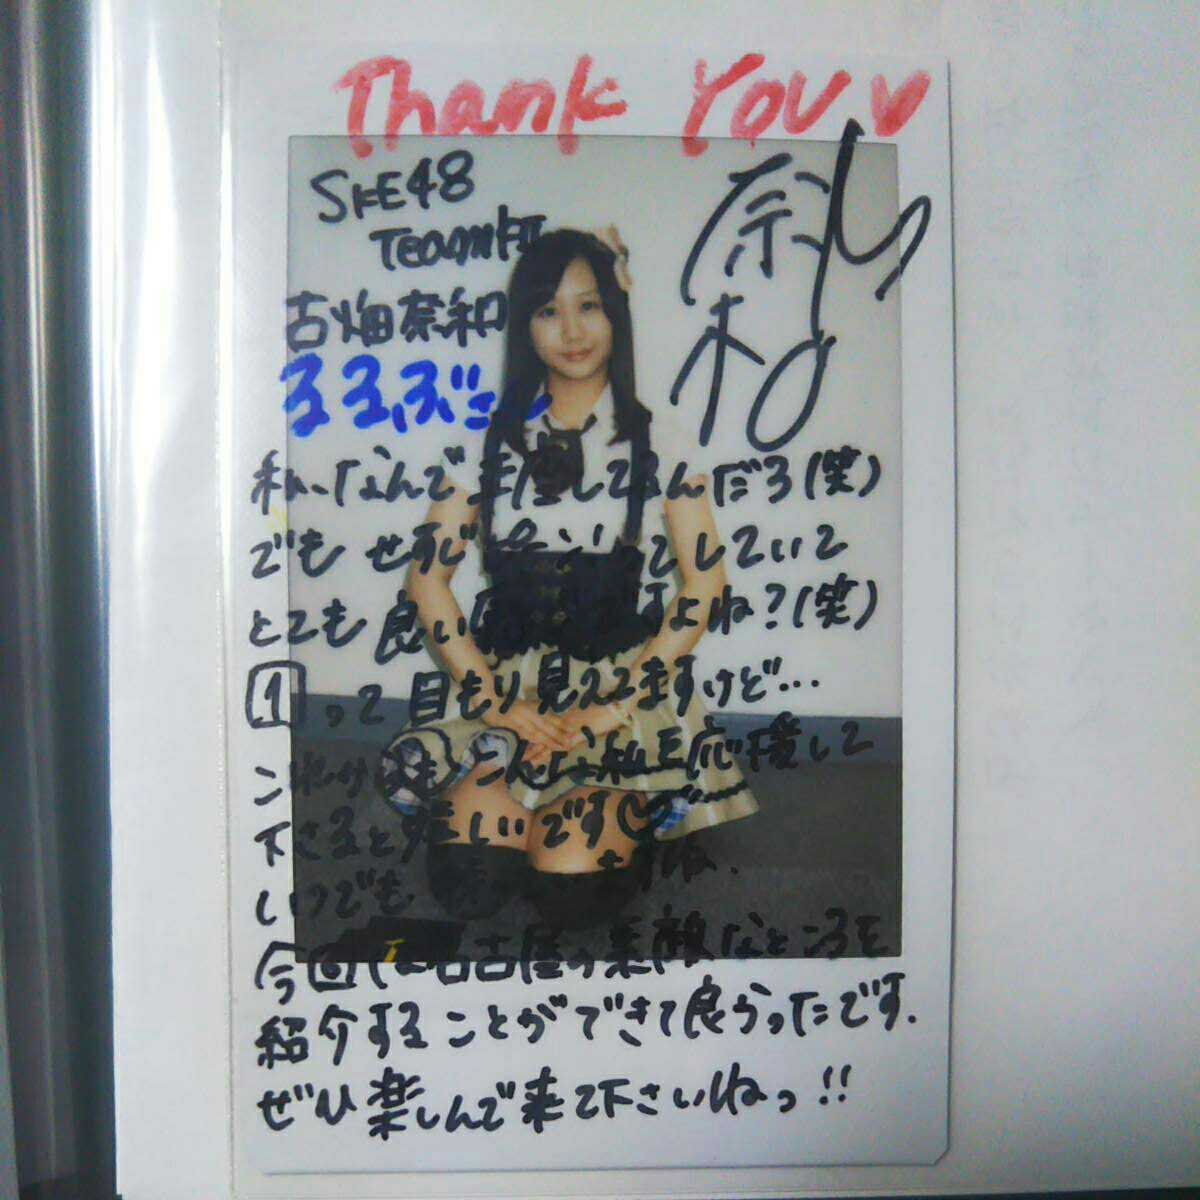 Thank You
SKE48
TeamKⅡ
古畑奈和
るるぶさん
奈和
私、なんで正座してるんだろ(笑)
でも せすじ ピンってしていて
とても良い ですよね?(笑)
1 って 目もり見えてますけど…
これからも、こんな私を応援して
下さると嬉しいです
いつでも ますね.
今回は名古屋の素敵なところを
紹介することができて良かったです.
ぜひ楽しんで来て下さいねっ!!